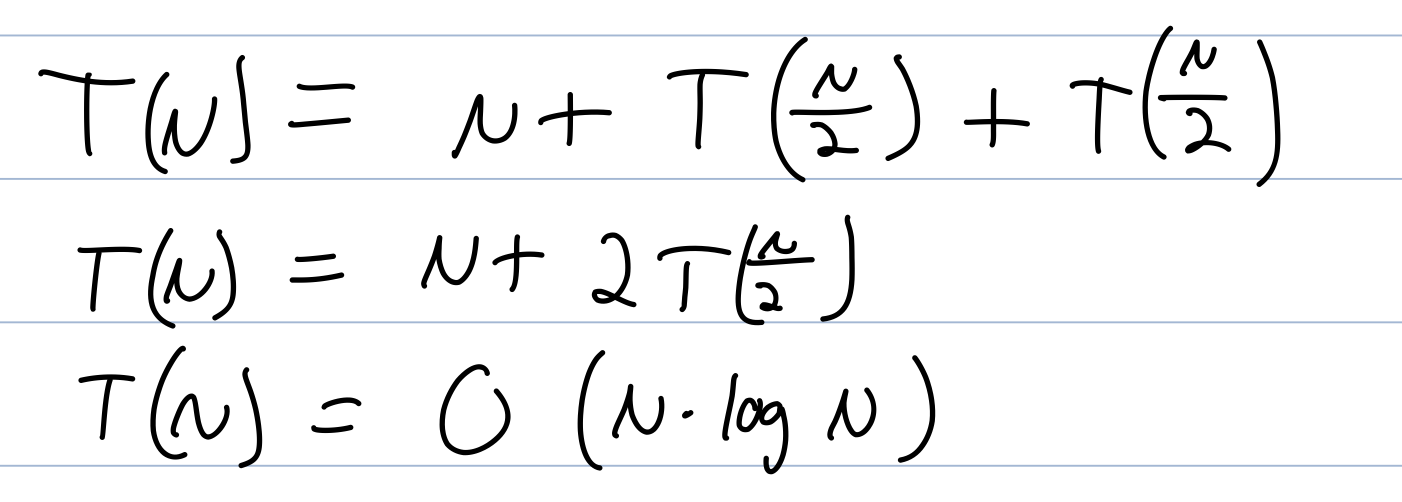 T(N) = N + T(N/2) + T(N/2)
T(N) = N + 2T(N/2)
T(N) = O (N · log N)